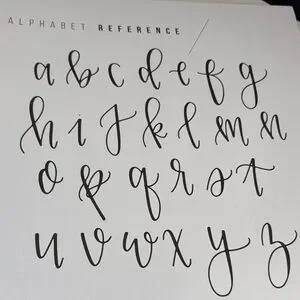 ALPHABET REFERENCE
a b c d e f g
h i j k l m n
o p q r s t
u v w x y z